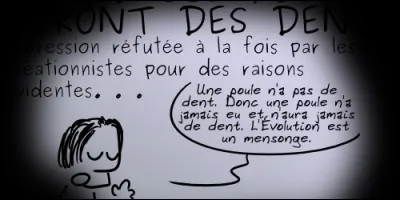 RONT DES DEN
pression réfutée à la fois par les
éationnistes pour des raisons
videntes...
Une poule n'a pas de
dent. Donc une poule n'a
jamais eu et n'aura jamais
de dent. L'Évolution est
un mensonge.